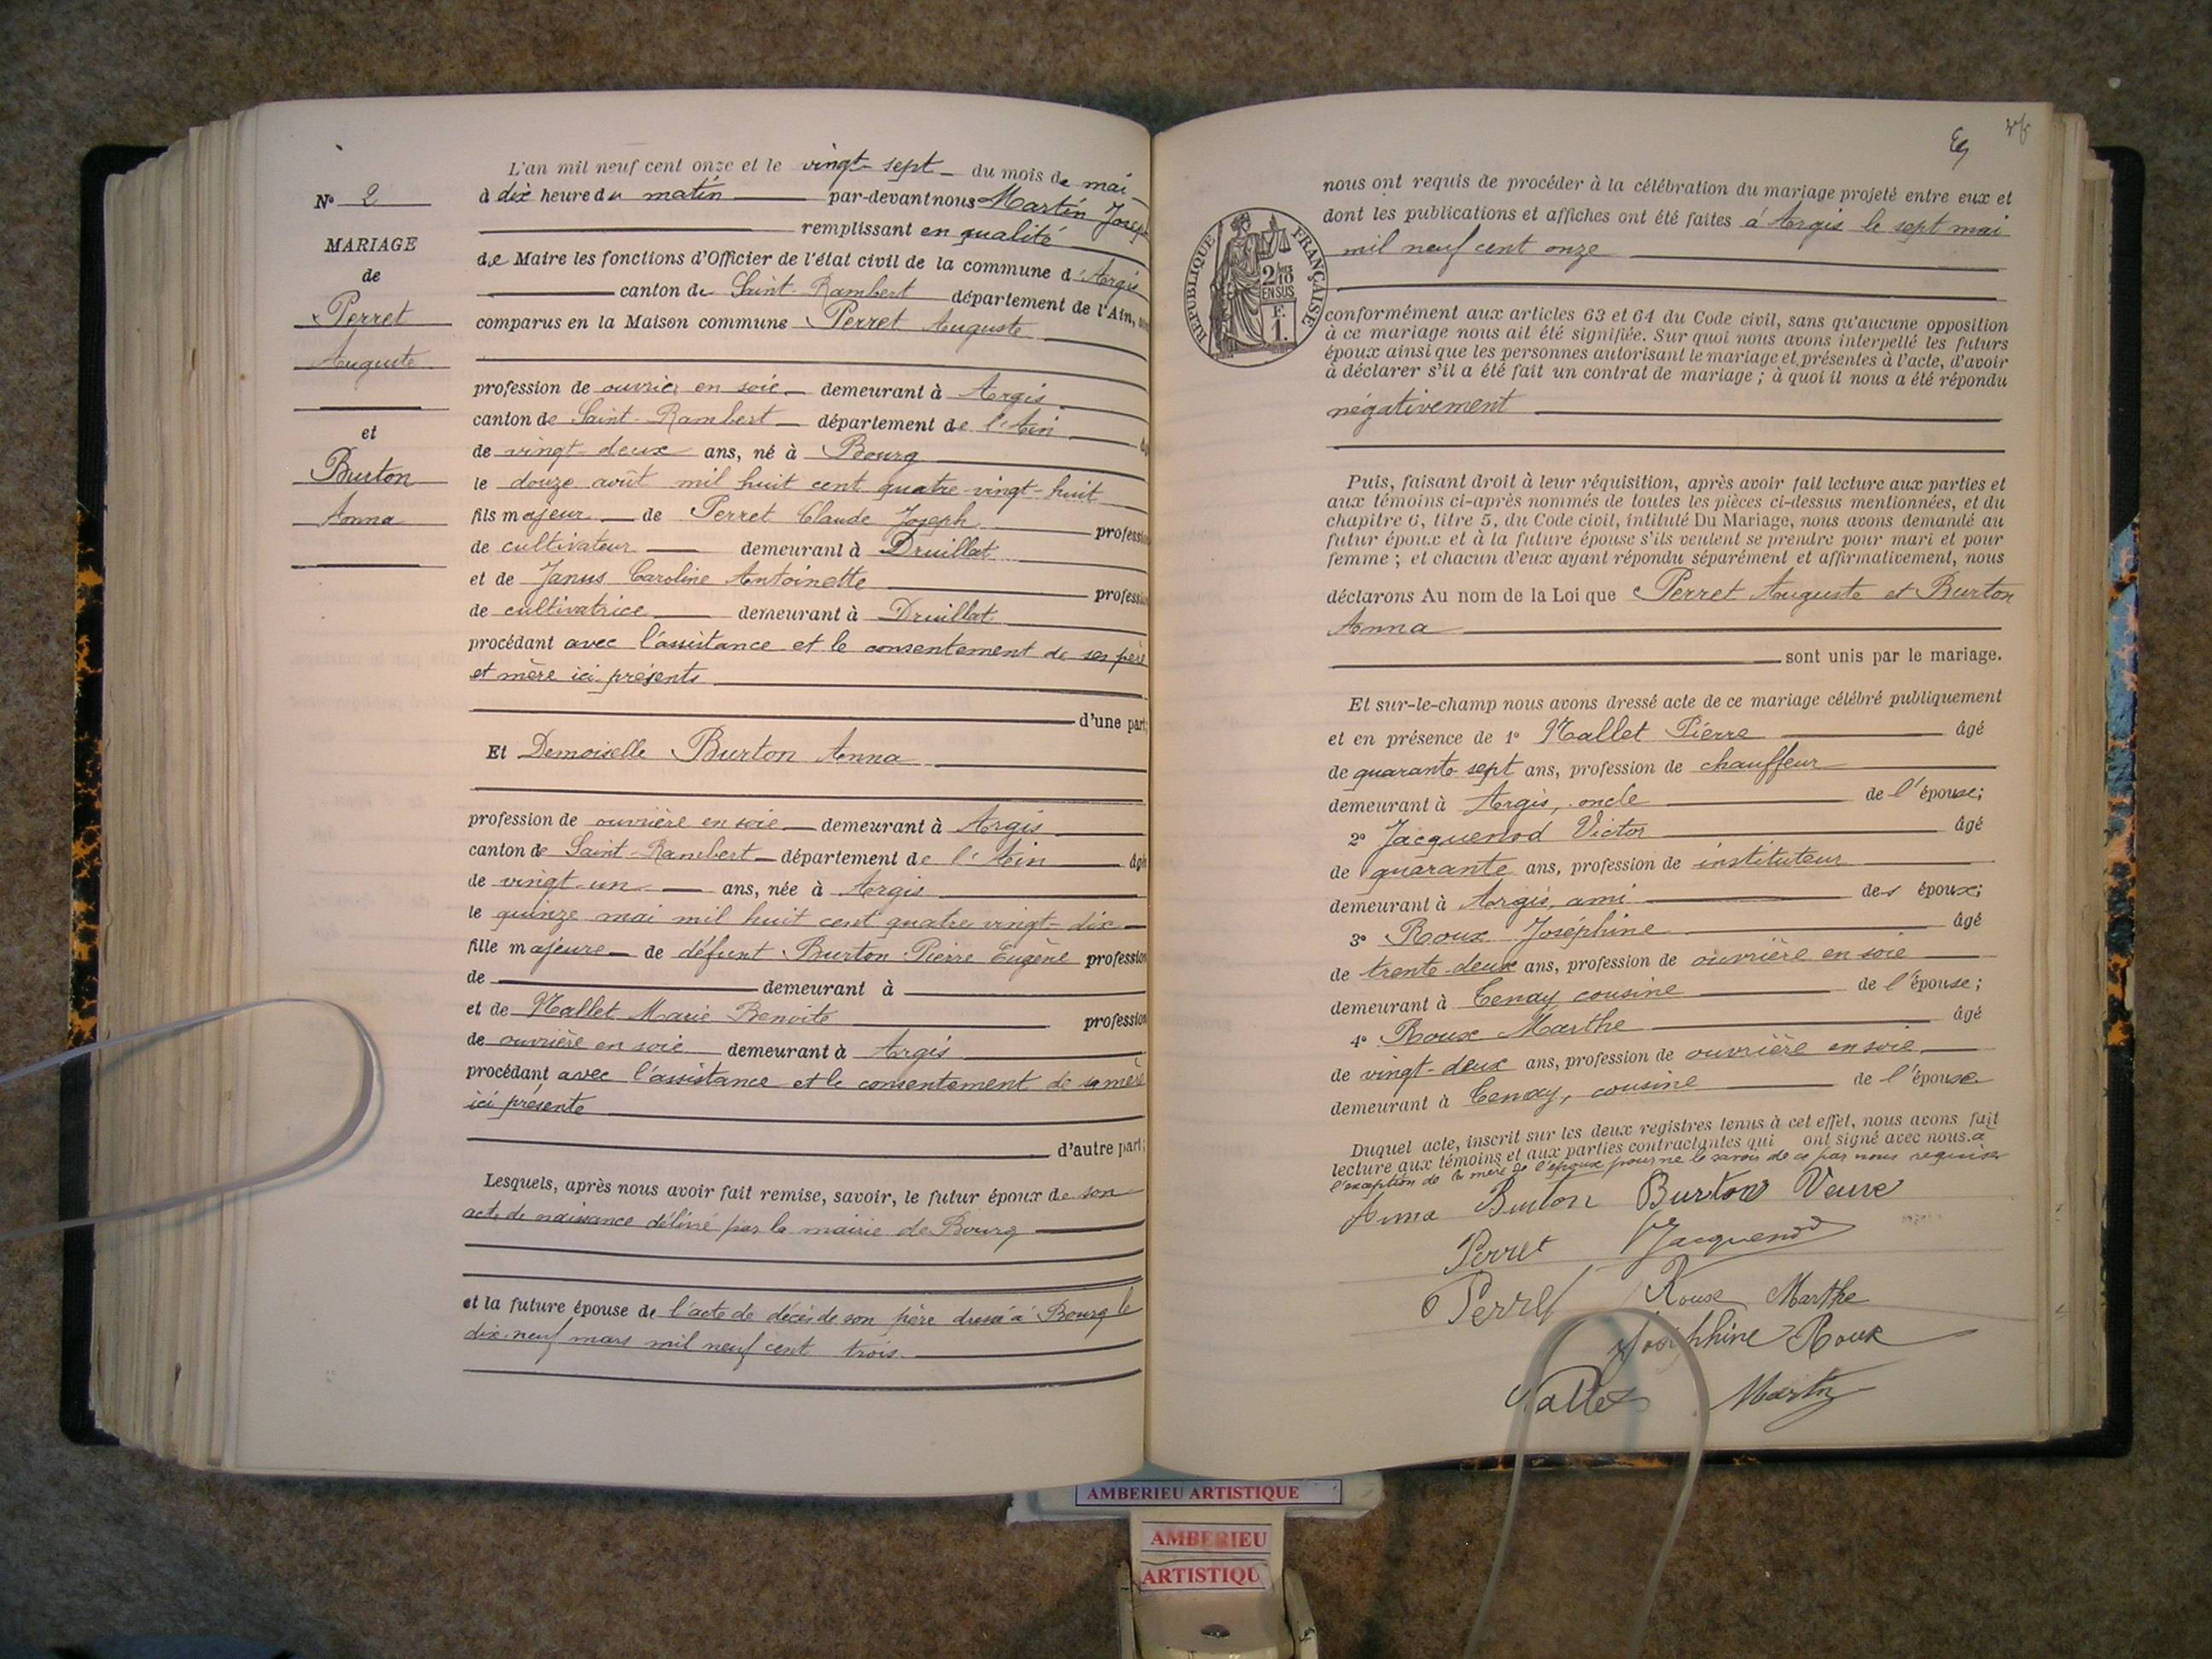 N° 2
MARIAGE
de
Perret
Auguste
et
Burton
Anna
L'an mil neuf cent onze et le vingt-sept du mois de mai
à dix heure du matin par-devant nous Martin Joseph
remplissant en qualité
de Maire les fonctions d'Officier de l'état civil de la commune d'Argis
canton de Saint-Rambert département de l'Ain,
comparus en la Maison commune Perret Auguste
profession de ouvrier en soie demeurant à Argis
canton de Saint-Rambert département de l'Ain
de vingt-deux ans, né à Bourg
le douze août mil huit cent quatre-vingt-huit
fils majeur de Perret Claude Joseph profession
de cultivateur demeurant à Druillat
et de Janus Caroline Antoinette profession
de cultivatrice demeurant à Druillat
procédant avec l'assistance et le consentement de ses père
et mère ici présents
d'une part;
Et Demoiselle Burton Anna
profession de ouvrière en soie demeurant à Argis
canton de Saint-Rambert département de l'Ain âgée
de vingt-un ans, née à Argis
le quinze mai mil huit cent quatre vingt-dix
fille majeure de défunt Burton Pierre Eugène profession
de demeurant à
et de Mallet Marie Benoite profession
de ouvrière en soie demeurant à Argis
procédant avec l'assistance et le consentement de sa mère
ici présente
d'autre part;
Lesquels, après nous avoir fait remise, savoir, le futur époux de son
acte de naissance délivré par la mairie de Bourg
et la future épouse de l'acte de décès de son père dressé à Bourg le
dix-neuf mars mil neuf cent trois.
nous ont requis de procéder à la célébration du mariage projeté entre eux et
dont les publications et affiches ont été faites à Argis le sept mai
mil neuf cent onze
RÉPUBLIQUE FRANÇAISE
2/10
EN SUS
F.
1.
conformément aux articles 63 et 64 du Code civil, sans qu'aucune opposition
à ce mariage nous ait été signifiée. Sur quoi nous avons interpellé les futurs
époux ainsi que les personnes autorisant le mariage et présentes à l'acte, d'avoir
à déclarer s'il a été fait un contrat de mariage ; à quoi il nous a été répondu
négativement
Puis, faisant droit à leur réquisition, après avoir fait lecture aux parties et
aux témoins ci-après nommés de toutes les pièces ci-dessus mentionnées, et du
chapitre 6, titre 5, du Code civil, intitulé Du Mariage, nous avons demandé au
futur époux et à la future épouse s'ils veulent se prendre pour mari et pour
femme ; et chacun d'eux ayant répondu séparément et affirmativement, nous
déclarons Au nom de la Loi que Perret Auguste et Burton
Anna
sont unis par le mariage.
Et sur-le-champ nous avons dressé acte de ce mariage célébré publiquement
et en présence de 1° Mallet Pierre âgé
de quarante-sept ans, profession de chauffeur
demeurant à Argis, oncle de l'épouse;
2° Jacquenod Victor âgé
de quarante ans, profession de instituteur
demeurant à Argis, ami des époux;
3° Roux Joséphine âgé
de trente-deux ans, profession de ouvrière en soie
demeurant à Tenay cousine de l'épouse;
4° Roux Marthe âgé
de vingt-deux ans, profession de ouvrière en soie
demeurant à Tenay, cousine de l'épouse.
Duquel acte, inscrit sur les deux registres tenus à cet effet, nous avons fait
lecture aux témoins et aux parties contractantes qui ont signé avec nous à
l'exception de la mère de l'époux pour ne le savoir de ce par nous requise
Anna Burton Burton Veuve
Perret Jacquenod
Perret Roux Marthe
Joséphine Roux
Mallet Martin
AMBERIEU ARTISTIQUE
AMBERIEU
ARTISTIQU